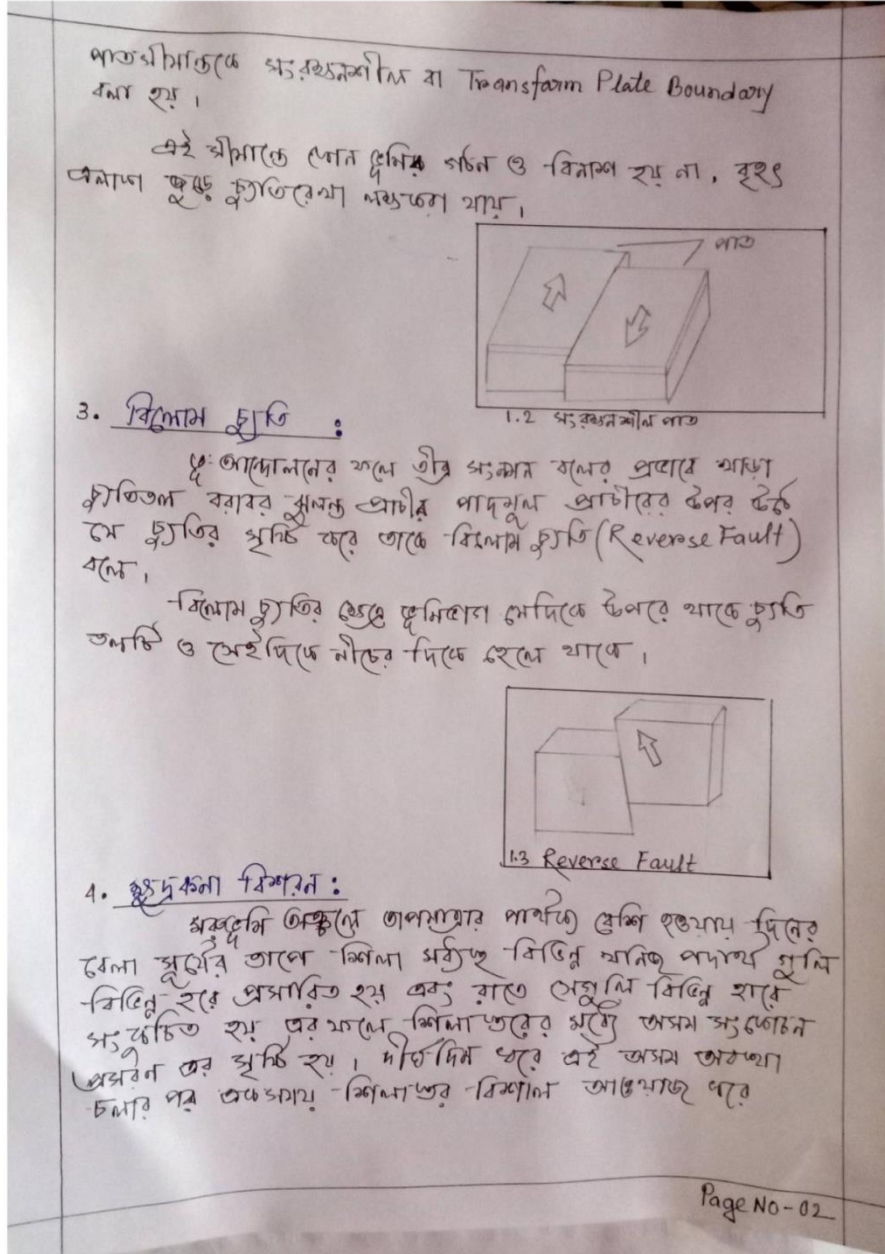 পাতসীমান্তকে সংরক্ষনশীল বা Transfarm Plate Boundary
বলা হয়।
এই সীমান্তে কোন ভূমির গঠন ও বিনাশ হয় না, বৃহৎ
এলাকা জুড়ে চ্যুতিরেখা লক্ষ্যকরা যায়।
পাত
1.2 সংরক্ষনশীল পাত
3. বিলোম চ্যুতি :
ভূ-আন্দোলনের ফলে তীব্র সংনমন বলের প্রভাবে খাড়া
চ্যুতিতল বরাবর ঝুলন্ত প্রাচীর পাদমূল প্রাচীরের উপর উঠে
যে চ্যুতির সৃষ্টি করে তাকে বিলোম চ্যুতি (Reverse Fault)
বলে।
বিলোম চ্যুতির ক্ষেত্রে ভূমিভাগ যেদিকে উপরে থাকে চ্যুতি
তলটি ও সেইদিকে নীচের দিকে হেলে থাকে।
1.3 Reverse Fault
4. ক্ষুদ্রকনা বিশরন :
মরুভূমি অঞ্চলে তাপমাত্রার পার্থক্য বেশি হওয়ায় দিনের
বেলা সূর্যের তাপে শিলা মধ্যস্থ বিভিন্ন খনিজ পদার্থ গুলি
বিভিন্ন হারে প্রসারিত হয় এবং রাতে সেগুলি বিভিন্ন হারে
সংকুচিত হয় এর ফলে শিলাস্তরের মধ্যে অসম সংকোচন
প্রসারন এর সৃষ্টি হয়। দীর্ঘদিন ধরে এই অসম অবস্থা
চলার পর একসময় শিলাস্তর বিশাল আওয়াজ করে
Page No-02